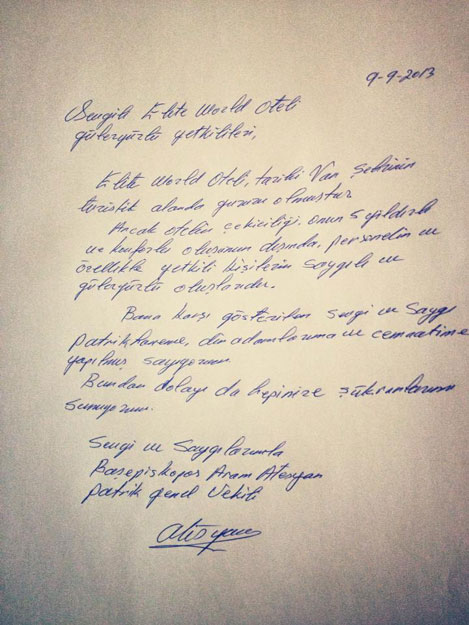 9-9-2013
Sevgili Elite World Oteli
güleryüzlü yetkilileri,
Elite World Oteli, tarihi Van Şehrinin
turistik alanda gururu olmuştur
Ancak otelin çekiciliği, onun 5 yıldızlı
ve konforlu oluşunun dışında, personelin ve
özellikle yetkili kişilerin saygılı ve
güleryüzlü oluşlarıdır.
Bana karşı gösterilen sevgi ve saygı
patrikhaneme, din adamlarıma ve cemaatime
yapılmış sayıyorum
Bundan dolayı da hepinize şükranlarımı
sunuyorum.
Sevgi ve Saygılarımla
Başepiskopos Aram Ateşyan
Patrik Genel Vekili